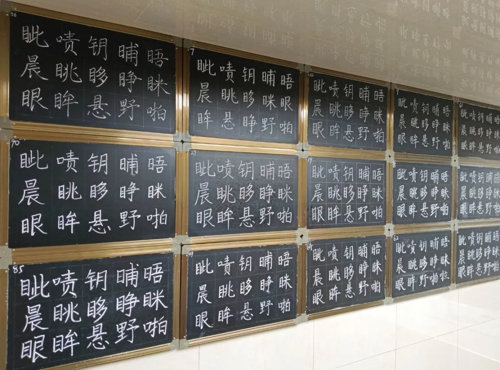 眦啧钥晡晤
晨眺眵睁眯
眼眸悬野啪
眦啧钥晡晤
晨眺眵睁眯
眼眸悬野啪
眦啧钥晡晤
晨眺眵睁眯
眼眸悬野啪
眦啧钥晡晤
晨眺眵睁眯
眼眸悬野啪
70
眦啧钥晡晤
晨眺眵睁眯
眼眸悬野啪
眦啧钥晡晤
晨眺眵睁眯
眼眸悬野啪
眦啧钥晡晤
晨眺眵睁眯
眼眸悬野啪
眦啧钥晡晤
晨眺眵睁眯
眼眸悬野啪
85
眦啧钥晡晤
晨眺眵睁眯
眼眸悬野啪
眦啧钥晡晤
晨眺眵睁眯
眼眸悬野啪
眦啧钥晡晤
晨眺眵睁眯
眼眸悬野啪
眦啧钥晡晤
晨眺眵睁眯
眼眸悬野啪